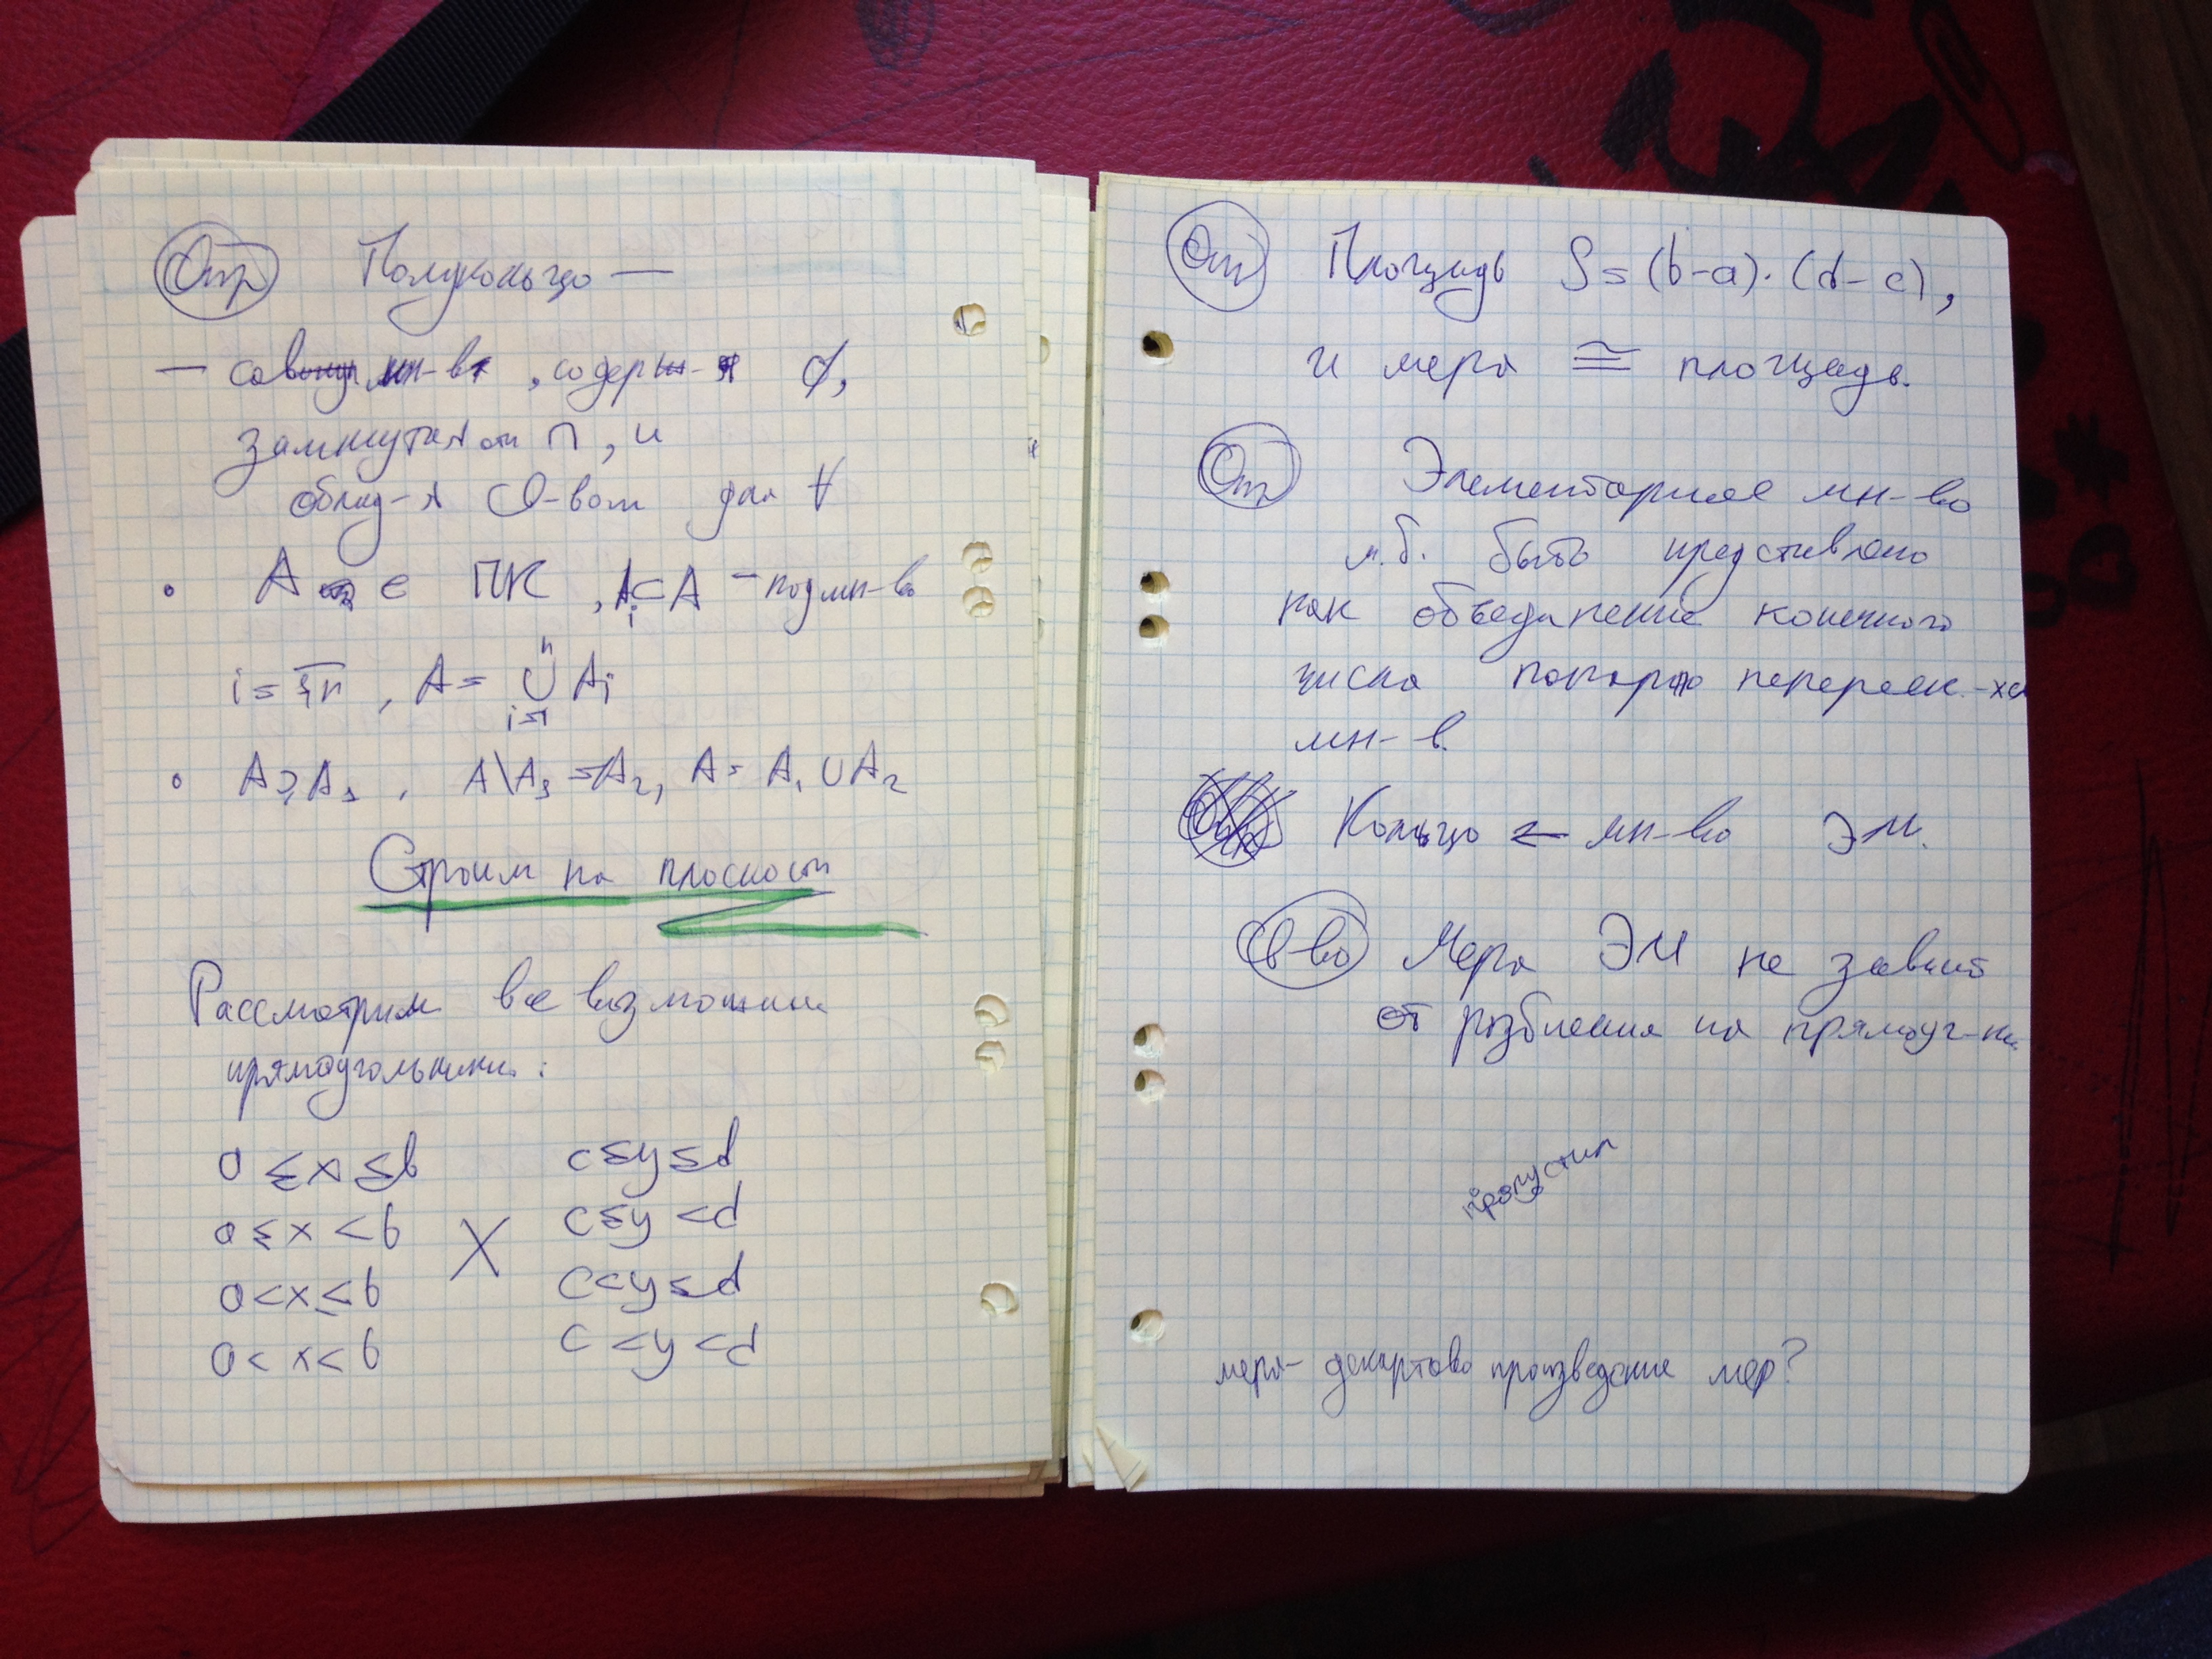 Опр Полукольцо —
— совокуп мн-в, содерж-я ∅,
замкнутая отн ∩, и
облад-я св-вом для ∀
• A ∈ ПК, Aᵢ⊂A - подмн-во
i = 1,n, A = ⋃ⁿᵢ₌₁ Aᵢ
• A ⊇ A₁, A\A₁ = A₂, A = A₁ ∪ A₂
Строим на плоскости
Рассмотрим все возможные
прямоугольники:
a ≤ x ≤ b c ≤ y ≤ d
a ≤ x < b × c ≤ y < d
a < x ≤ b c < y ≤ d
a < x < b c < y < d
Опр Площадь S = (b-a)·(d-c),
и мера ≅ площадь.
Опр Элементарное мн-во
м.б. быть представлено
как объединение конечного
числа попарно пересек.-хся
мн-в.
Кольцо ← мн-во ЭМ.
Св-во Мера ЭМ не зависит
от разбиения на прямоуг-ки.
пропустил
мера- декартово произведение мер?